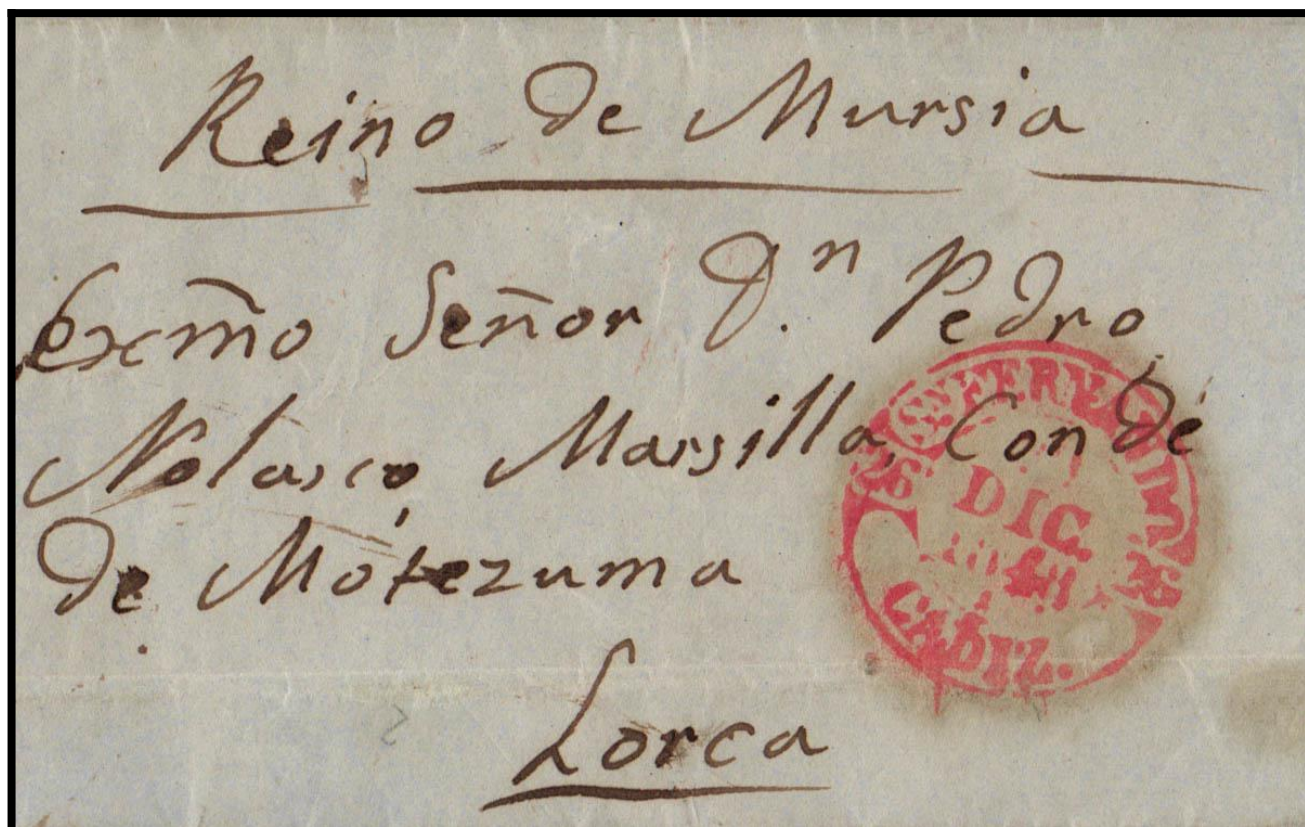 Reino de Mursia
Exm̃o Señor Dⁿ. Pedro
Nolasco Marsilla, Conde
de Motezuma
Lorca
26
DIC.
26
CADIZ.